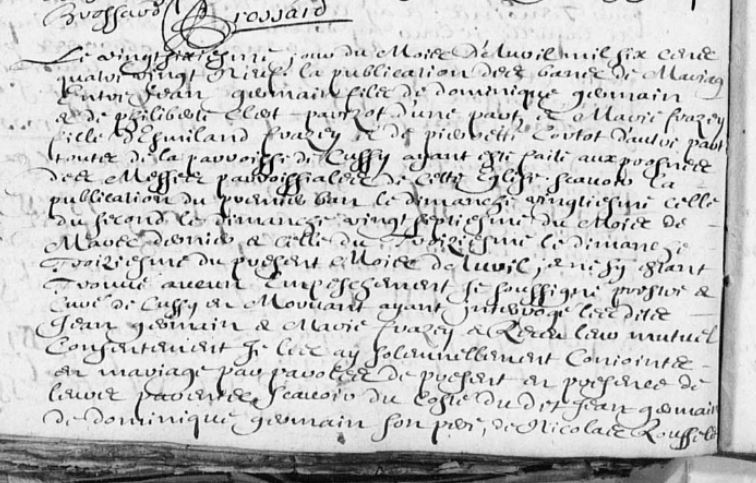 Brossard Brossard
Le vingtsixiesme jour du Mois d'Avril mil six cens
quatre vingt Neuf la publication des bancs de Mariag
Entre Jean germain fils de dominique germain
& de philiberte d'une part, & Marie frazey
fille d'Esmiland frazey & de pierrette Cortot d'autre part
toutes de la parroisse de Cussy ayant esté faite aux prosnes
des Messes parroissialles de Cette Eglise scavoir la
publication du premier ban le dimanche vingtiesme Celle
du second le dimanche vingt septiesme du Mois de
Mars dernier & Celle du Troiziesme le dimanche
Troiziesme du present Mois d'Avril, & n'y estant
Trouvé aucun Empeschement Je soussigné prestre &
Curé de Cussy en Morvant ayant interrogé lesdits
Jean germain & Marie frazey & Receu leur mutuel
Consentement Je les ay solennellement Conjoints
en mariage par parolles de present en presence de
leurs parentes scavoir du Costé dudit Jean germain
de dominique germain son pere, de Nicolas